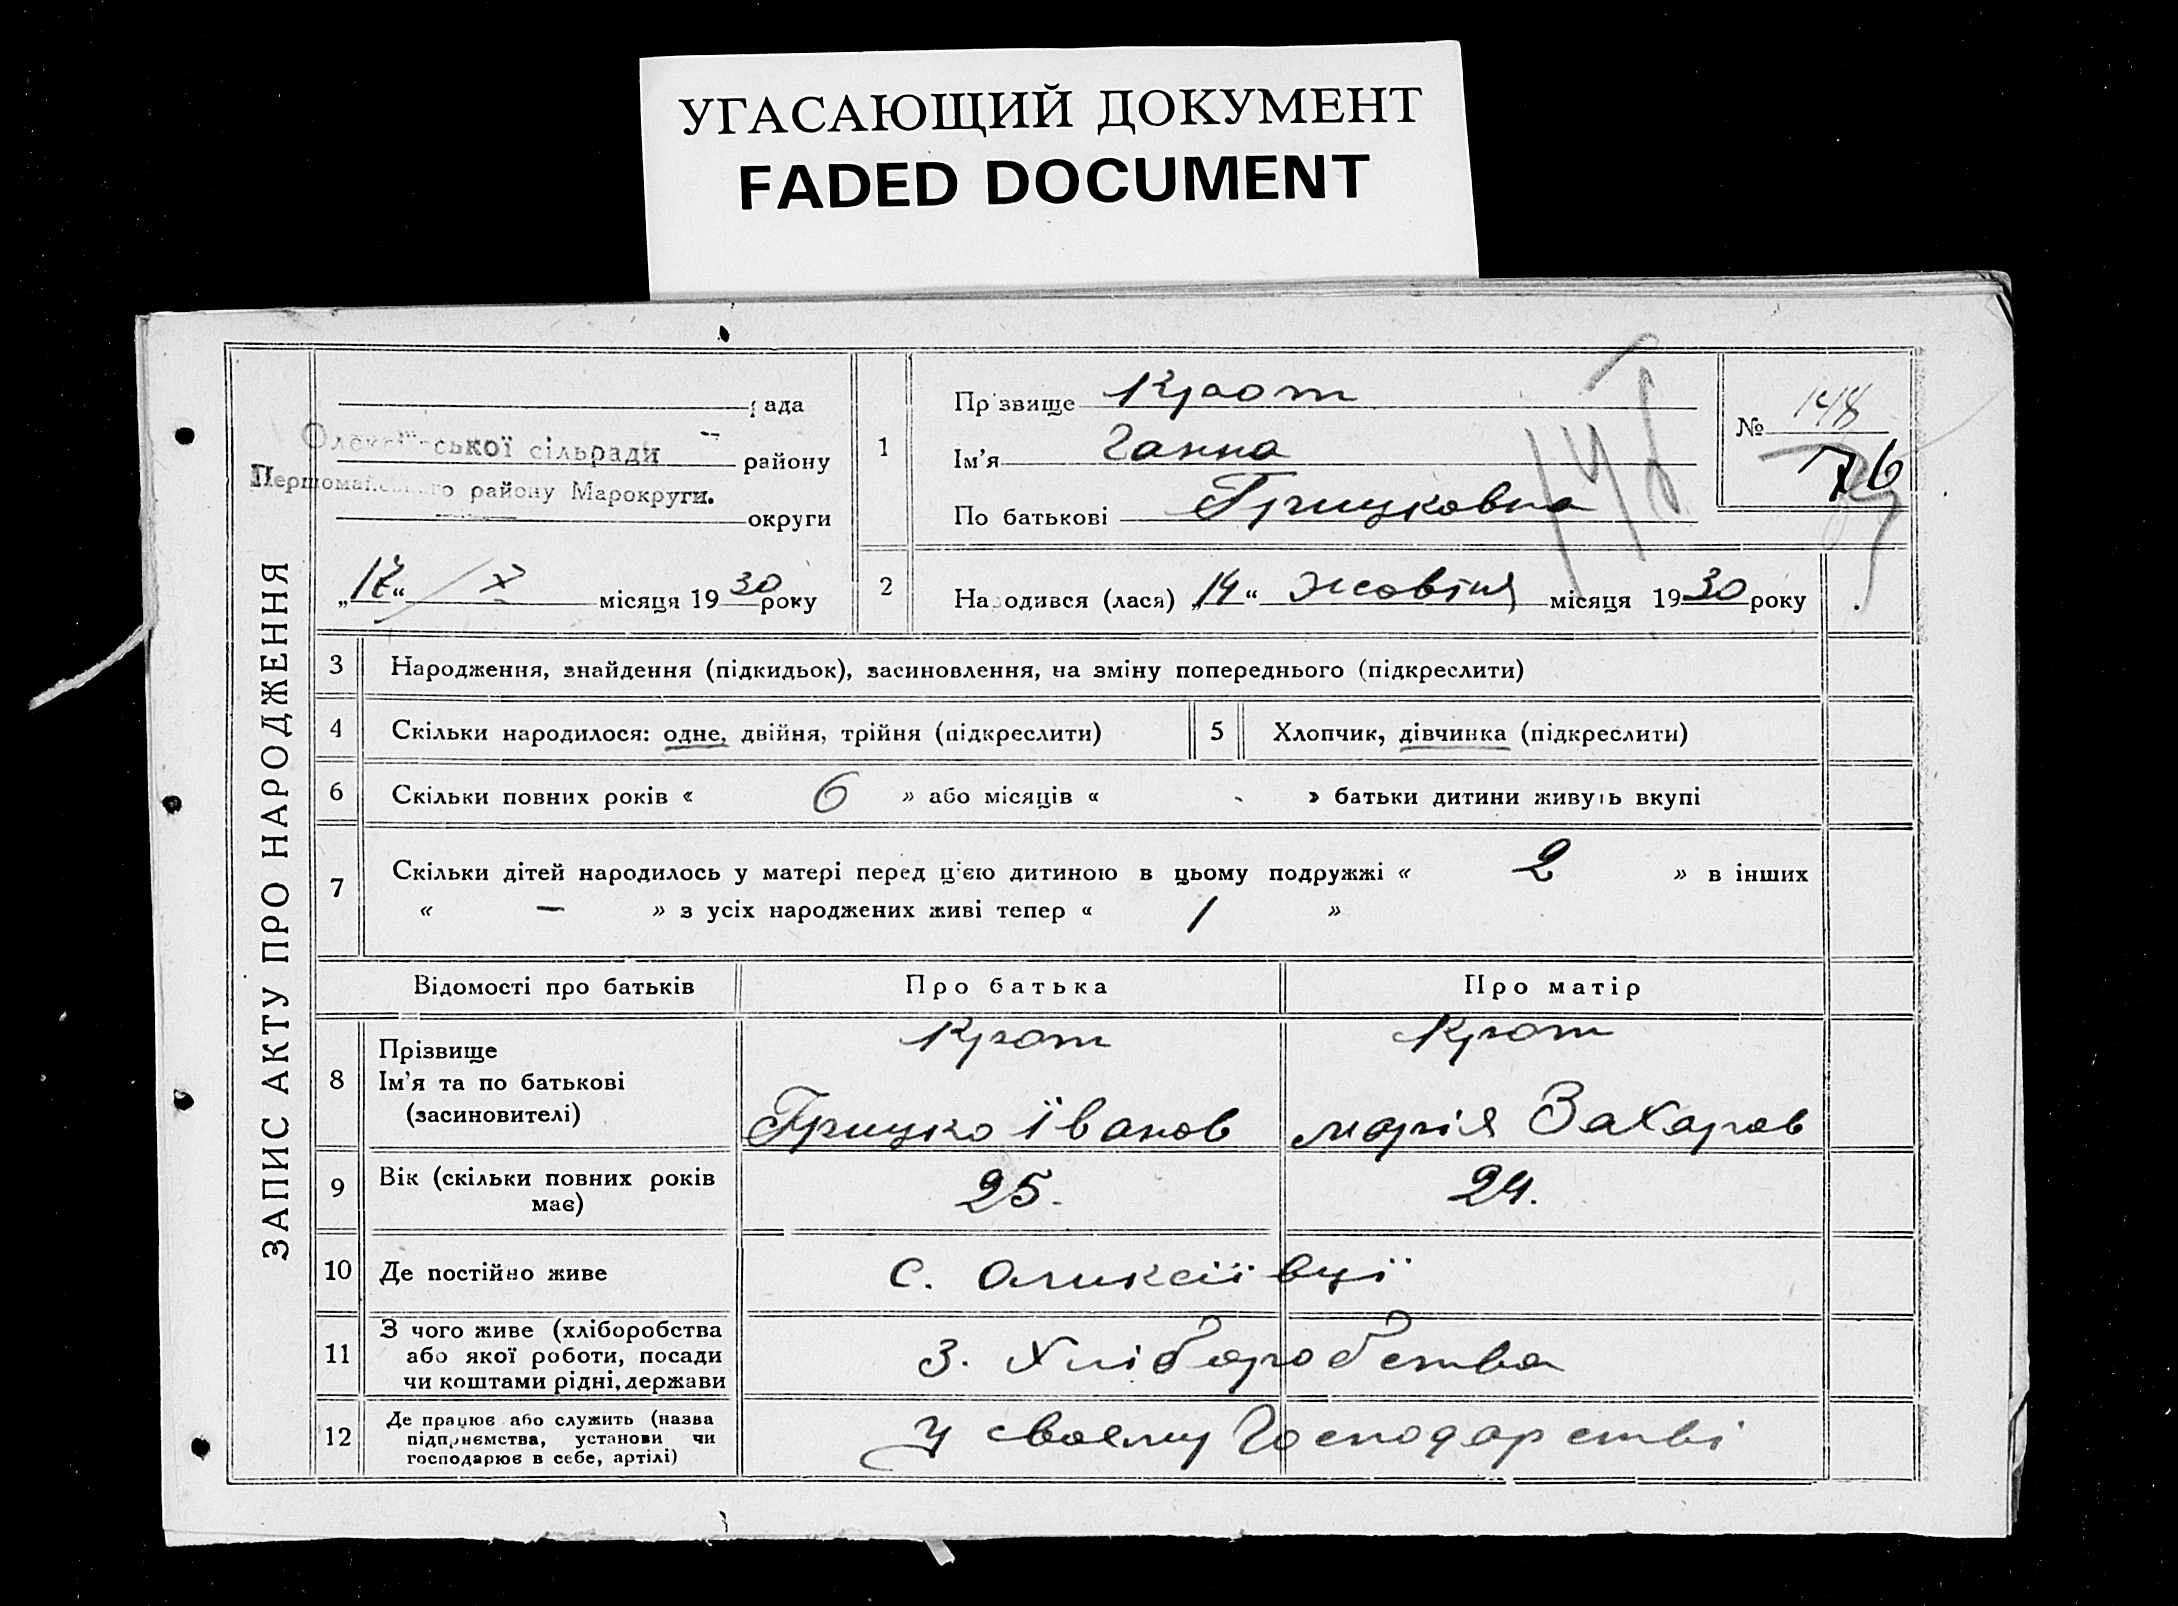 УГАСАЮЩИЙ ДОКУМЕНТ
FADED DOCUMENT
ЗАПИС АКТУ ПРО НАРОДЖЕННЯ
рада
сільради району
Першомайського району Марокруги.
округи
„17“ / X місяця 1930 року
1
Прізвище Крот
Ім'я Ганна
По батькові Грицковна
№ 148
76
2 Народився (лася) „14“ жовтня місяця 1930 року
3 Народження, знайдення (підкидьок), засиновлення, на зміну попереднього (підкреслити)
4 Скільки народилося: одне, двійня, трійня (підкреслити) 5 Хлопчик, дівчинка (підкреслити)
6 Скільки повних років « 6 » або місяців « - » батьки дитини живуть вкупі
7 Скільки дітей народилось у матері перед цією дитиною в цьому подружжі « 2 » в інших
« — » з усіх народжених живі тепер « 1 »
Відомості про батьків Про батька Про матір
8 Прізвище Крот Крот
Ім'я та по батькові
(засиновителі) Грицко Їванов марія Захаров
9 Вік (скільки повних років має) 25. 24.
10 Де постійно живе с. Оликсіївці
11 З чого живе (хліборобства
або якої роботи, посади
чи коштами рідні, держави З. Хліборобства
12 Де працює або служить (назва
підприємства, установи чи
господарює в себе, артілі) У своєму Господарстві